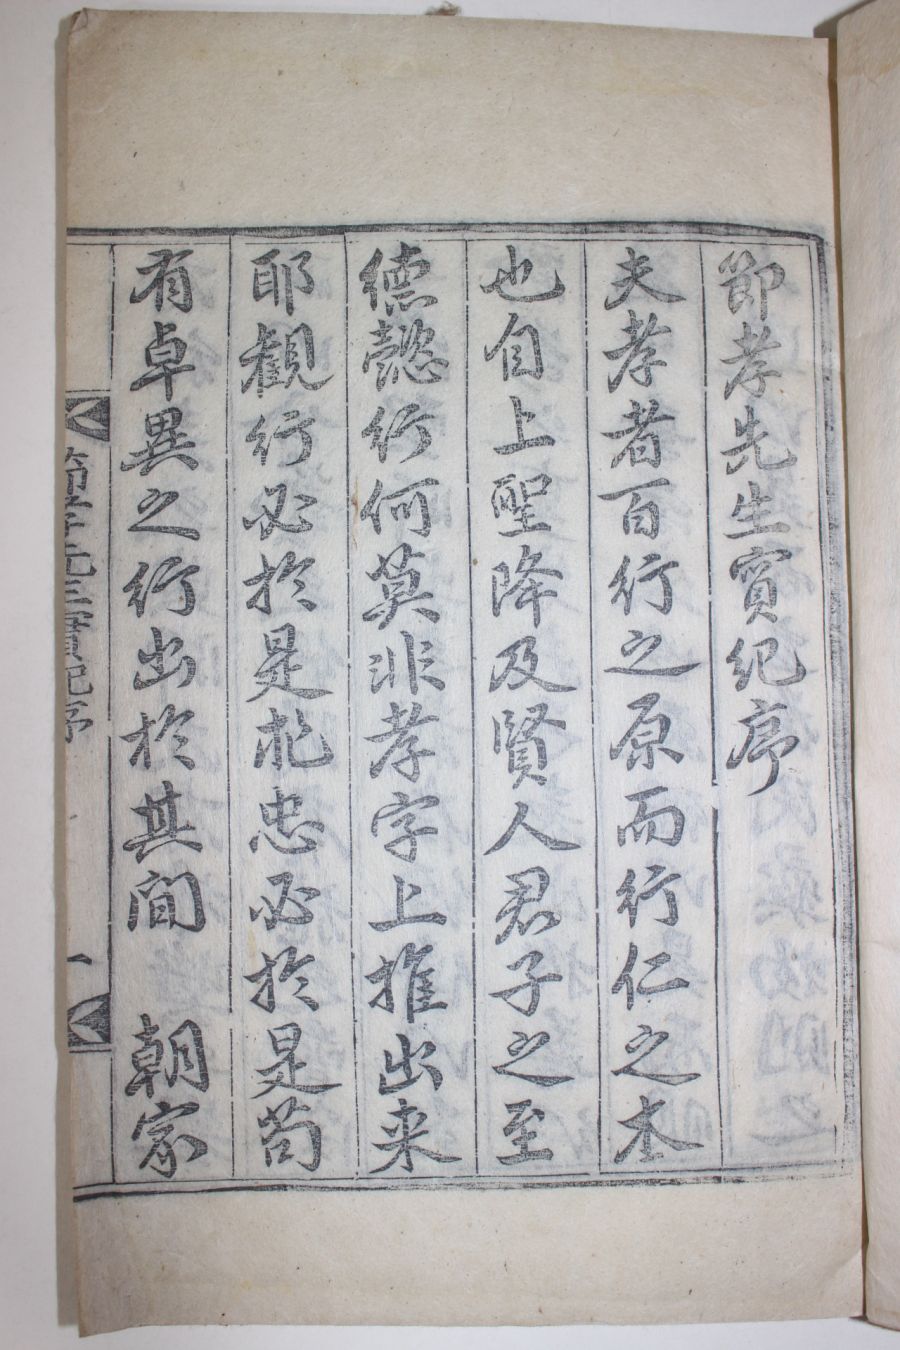 節孝先生實紀序
夫孝者百行之原而行仁之本
也自上聖降及賢人君子之至
德懿行何莫非孝字上推出来
耶觀行必於是求忠必於是苟
有卓異之行出於其間 朝家
節孝先生實紀序
一